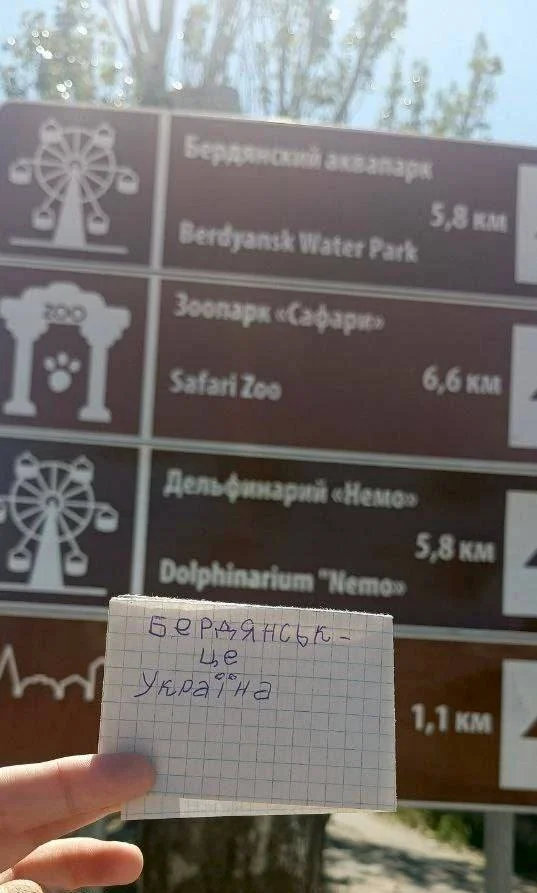 Бердянский аквапарк
5,8 км
Berdyansk Water Park
ZOO
Зоопарк «Сафари»
6,6 км
Safari Zoo
Дельфинарий «Немо»
5,8 км
Dolphinarium "Nemo»
1,1 км
БЕРДЯНСЬК -
це
Україна